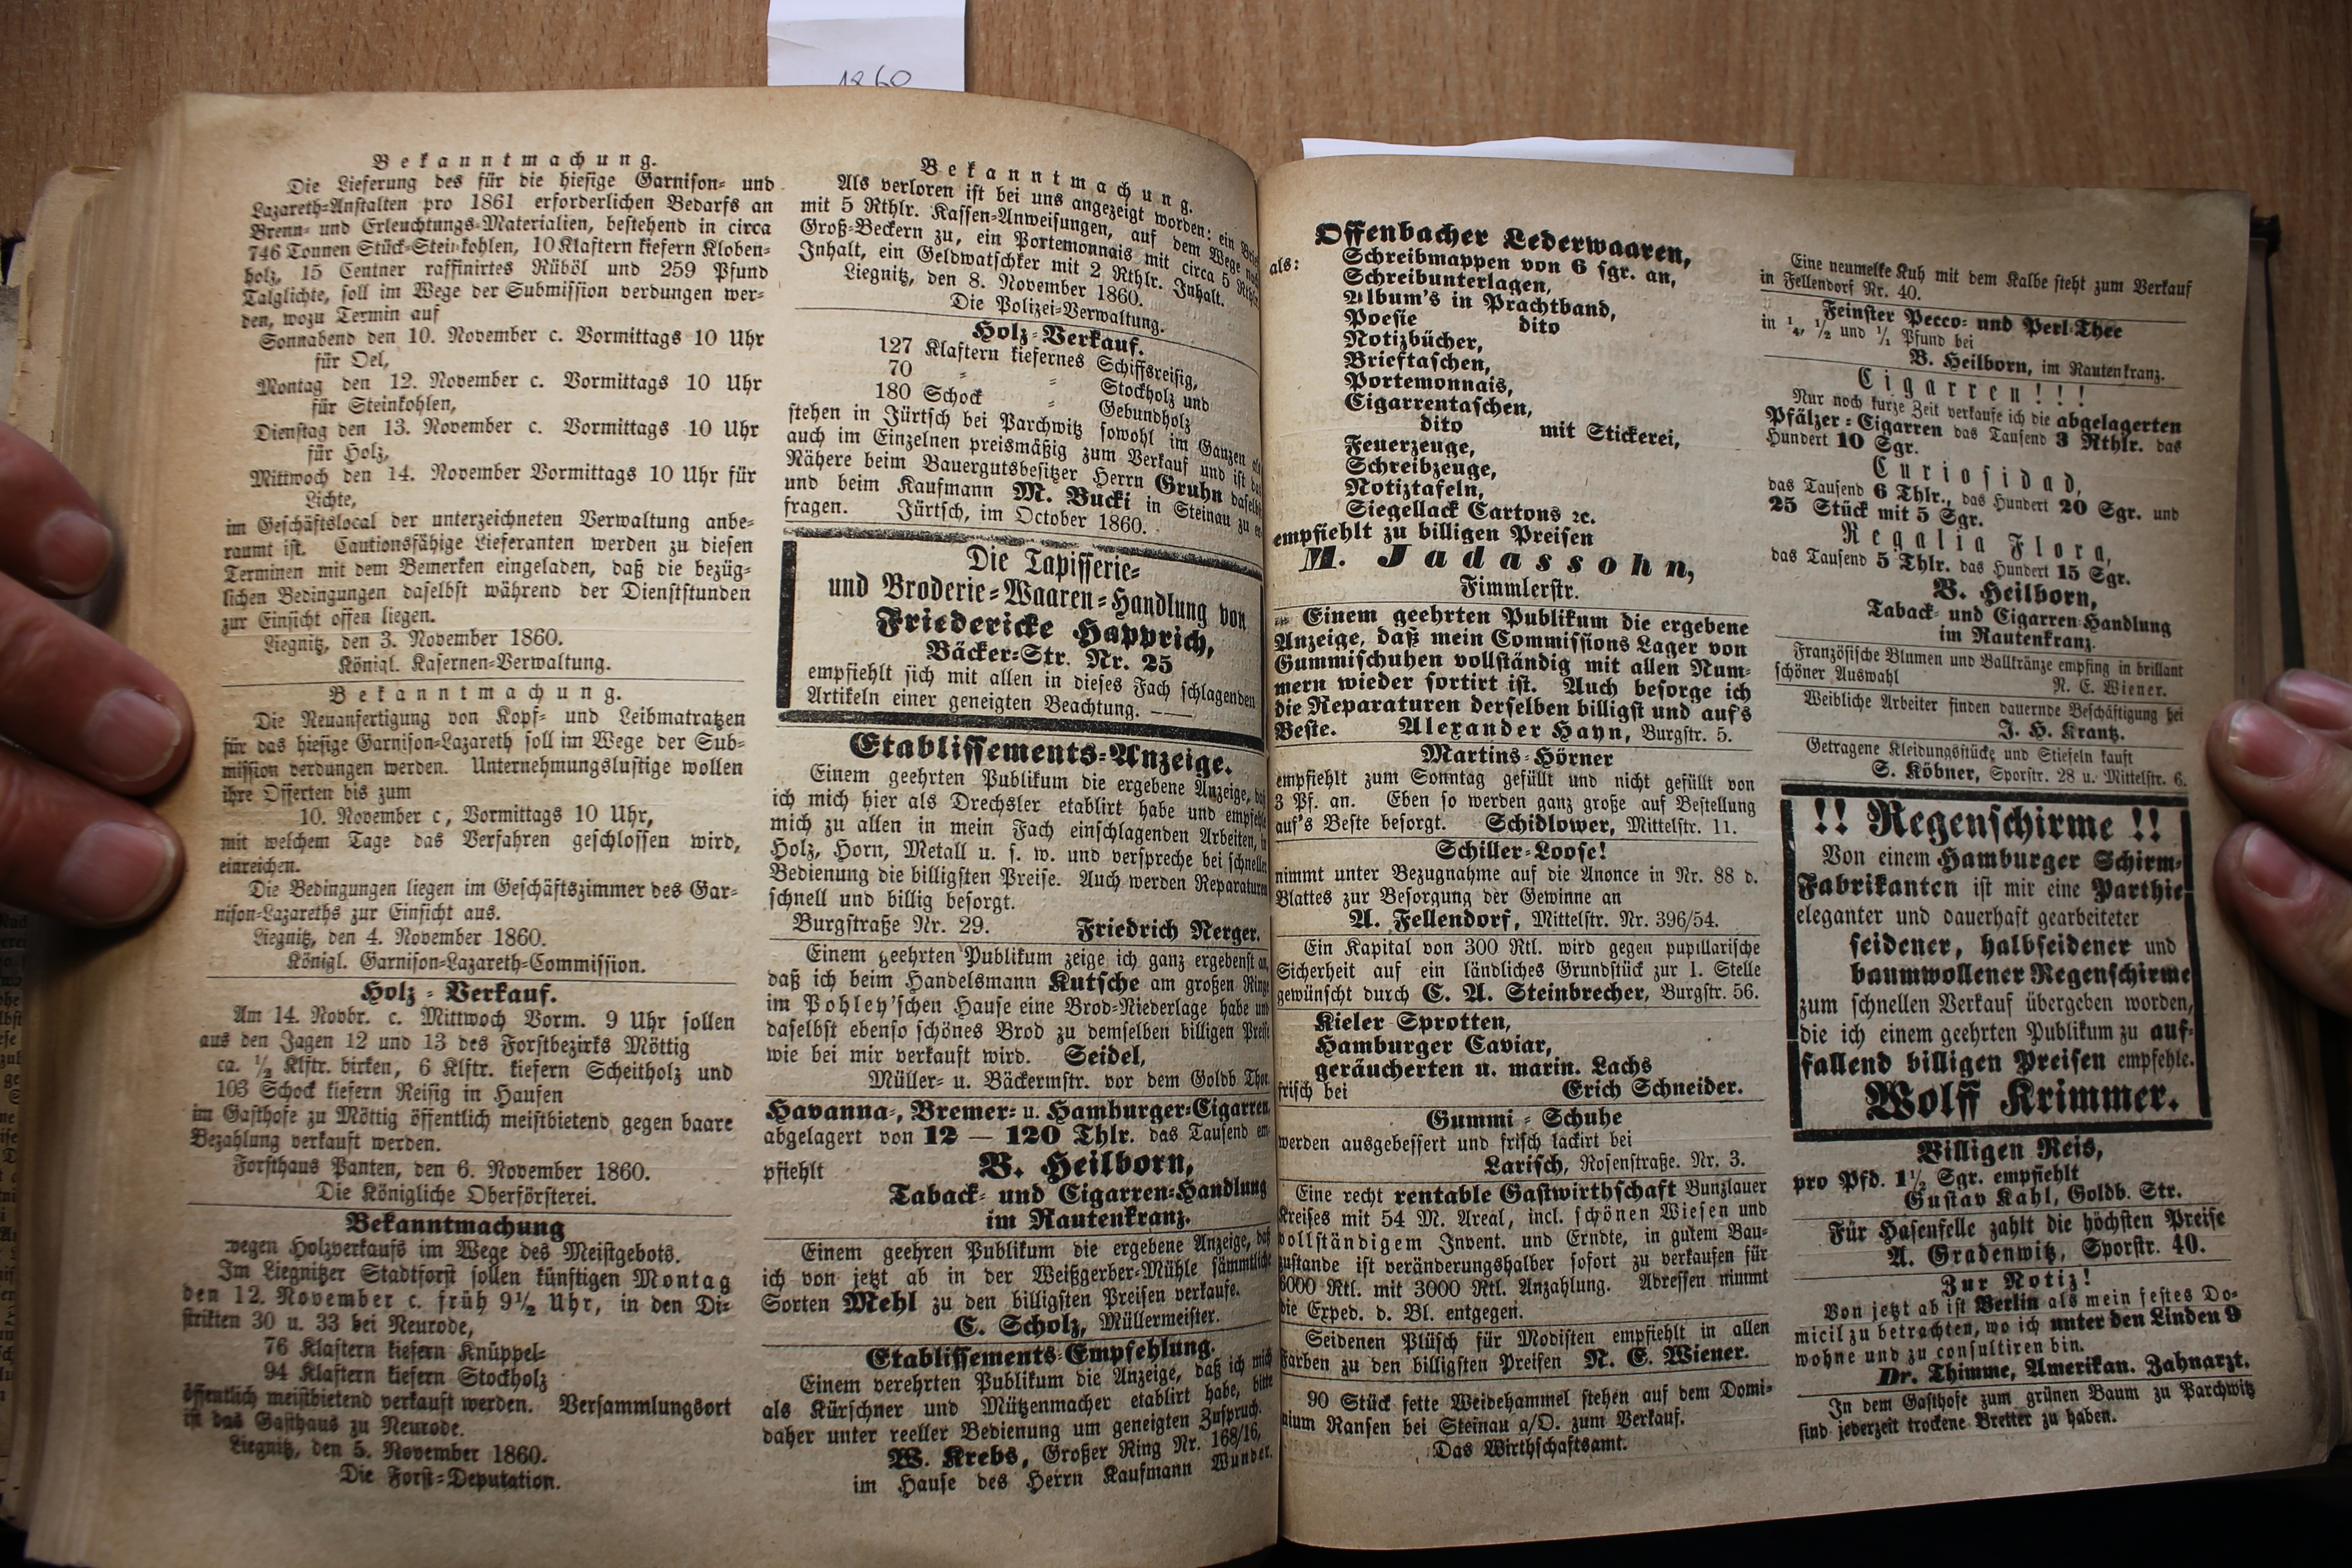 1860
Bekanntmachung.
Die Lieferung des für die hiesige Garnison- und
Lazareth-Anstalten pro 1861 erforderlichen Bedarfs an
Brenn- und Erleuchtungs-Materialien, bestehend in circa
746 Tonnen Stück-Steinkohlen, 10 Klaftern kiefern Kloben-
holz, 15 Centner raffinirtes Rüböl und 259 Pfund
Talglichte, soll im Wege der Submission verdungen wer-
den, wozu Termin auf
Sonnabend den 10. November c. Vormittags 10 Uhr
für Oel,
Montag den 12. November c. Vormittags 10 Uhr
für Steinkohlen,
Dienstag den 13. November c. Vormittags 10 Uhr
für Holz,
Mittwoch den 14. November Vormittags 10 Uhr für
Lichte,
im Geschäftslocal der unterzeichneten Verwaltung anbe-
raumt ist. Cautionsfähige Lieferanten werden zu diesen
Terminen mit dem Bemerken eingeladen, daß die bezüg-
lichen Bedingungen daselbst während der Dienststunden
zur Einsicht offen liegen.
Liegnitz, den 3. November 1860.
Königl. Kasernen-Verwaltung.
Bekanntmachung.
Die Neuanfertigung von Kopf- und Leibmatratzen
für das hiesige Garnison-Lazareth soll im Wege der Sub-
mission verdungen werden. Unternehmungslustige wollen
ihre Offerten bis zum
10. November c, Vormittags 10 Uhr,
mit welchem Tage das Verfahren geschlossen wird,
einreichen.
Die Bedingungen liegen im Geschäftszimmer des Gar-
nison-Lazareths zur Einsicht aus.
Liegnitz, den 4. November 1860.
Königl. Garnison-Lazareth-Commission.
Holz-Verkauf.
Am 14. Novbr. c. Mittwoch Vorm. 9 Uhr sollen
aus den Jagen 12 und 13 des Forstbezirks Möttig
ca. ½ Klftr. birken, 6 Klftr. kiefern Scheitholz und
103 Schock kiefern Reisig in Haufen
im Gasthofe zu Möttig öffentlich meistbietend gegen baare
Bezahlung verkauft werden.
Forsthaus Panten, den 6. November 1860.
Die Königliche Oberförsterei.
Bekanntmachung
wegen Holzverkaufs im Wege des Meistgebots.
Im Liegnitzer Stadtforst sollen künftigen Montag
den 12. November c. früh 9½ Uhr, in den Di-
strikten 30 u. 33 bei Neurode,
76 Klaftern kiefern Knüppel-
94 Klaftern kiefern Stockholz
öffentlich meistbietend verkauft werden. Versammlungsort
ist das Gasthaus zu Neurode.
Liegnitz, den 5. November 1860.
Die Forst-Deputation.
Bekanntmachung.
Als verloren ist bei uns angezeigt worden: ein Brief
mit 5 Rthlr. Kassen-Anweisungen, auf dem Wege nach
Groß-Beckern zu, ein Portemonnais mit circa 5 Rthlr.
Inhalt, ein Geldwatschker mit 2 Rthlr. Inhalt.
Liegnitz, den 8. November 1860.
Die Polizei-Verwaltung.
Holz-Verkauf.
127 Klaftern kiefernes Schiffsreisig,
70 " " Stockholz und
180 Schock " Gebundholz
stehen in Jürtsch bei Parchwitz sowohl im Ganzen als
auch im Einzelnen preismäßig zum Verkauf und ist das
Nähere beim Bauergutsbesitzer Herrn Gruhn daselbst
und beim Kaufmann M. Bucki in Steinau zu er
fragen. Jürtsch, im October 1860.
Die Tapisserie-
und Broderie-Waaren-Handlung von
Friedericke Happrich,
Bäcker-Str. Nr. 25
empfiehlt sich mit allen in dieses Fach schlagenden
Artikeln einer geneigten Beachtung. ——
Etablissements-Anzeige.
Einem geehrten Publikum die ergebene Anzeige, daß
ich mich hier als Drechsler etablirt habe und empfehle
mich zu allen in mein Fach einschlagenden Arbeiten, in
Holz, Horn, Metall u. s. w. und verspreche bei schneller
Bedienung die billigsten Preise. Auch werden Reparaturen
schnell und billig besorgt.
Burgstraße Nr. 29. Friedrich Nerger.
Einem geehrten Publikum zeige ich ganz ergebenst an,
daß ich beim Handelsmann Kutsche am großen Ringe
im Pohley'schen Hause eine Brod-Niederlage habe und
daselbst ebenso schönes Brod zu demselben billigen Preise
wie bei mir verkauft wird. Seidel,
Müller- u. Bäckermstr. vor dem Goldb. Thor.
Havanna-, Bremer- u. Hamburger-Cigarren,
abgelagert von 12 — 120 Thlr. das Tausend em-
pfiehlt B. Heilborn,
Taback- und Cigarren-Handlung
im Rautenkranz.
Einem geehren Publikum die ergebene Anzeige, daß
ich von jetzt ab in der Weißgerber-Mühle sämmtliche
Sorten Mehl zu den billigsten Preisen verkaufe.
C. Scholz, Müllermeister.
Etablissements-Empfehlung.
Einem verehrten Publikum die Anzeige, daß ich mich
als Kürschner und Mützenmacher etablirt habe, bitte
daher unter reeller Bedienung um geneigten Zuspruch.
W. Krebs, Großer Ring Nr. 168/16,
im Hause des Herrn Kaufmann Wundel.
Offenbacher Lederwaaren,
als: Schreibmappen von 6 sgr. an,
Schreibunterlagen,
Album's in Prachtband,
Poesie dito
Notizbücher,
Brieftaschen,
Portemonnais,
Cigarrentaschen,
dito mit Stickerei,
Feuerzeuge,
Schreibzeuge,
Notiztafeln,
Siegellack Cartons ꝛc.
empfiehlt zu billigen Preisen
M. Jadassohn,
Fimmlerstr.
Einem geehrten Publikum die ergebene
Anzeige, daß mein Commissions Lager von
Gummischuhen vollständig mit allen Num-
mern wieder sortirt ist. Auch besorge ich
die Reparaturen derselben billigst und auf's
Beste. Alexander Hayn, Burgstr. 5.
Martins-Hörner
empfiehlt zum Sonntag gefüllt und nicht gefüllt von
3 Pf. an. Eben so werden ganz große auf Bestellung
auf's Beste besorgt. Schidlower, Mittelstr. 11.
Schiller-Loose!
nimmt unter Bezugnahme auf die Anonce in Nr. 88 d.
Blattes zur Besorgung der Gewinne an
A. Fellendorf, Mittelstr. Nr. 396/54.
Ein Kapital von 300 Rtl. wird gegen pupillarische
Sicherheit auf ein ländliches Grundstück zur 1. Stelle
gewünscht durch C. A. Steinbrecher, Burgstr. 56.
Kieler Sprotten,
Hamburger Caviar,
geräucherten u. marin. Lachs
frisch bei Erich Schneider.
Gummi-Schuhe
werden ausgebessert und frisch lackirt bei
Larisch, Rosenstraße. Nr. 3.
Eine recht rentable Gastwirthschaft Bunzlauer
Kreises mit 54 M. Areal, incl. schönen Wiesen und
vollständigem Invent. und Erndte, in gutem Bau-
zustande ist veränderungshalber sofort zu verkaufen für
6000 Rtl. mit 3000 Rtl. Anzahlung. Adressen nimmt
die Exped. d. Bl. entgegen.
Seidenen Plüsch für Modisten empfiehlt in allen
Farben zu den billigsten Preisen N. E. Wiener.
90 Stück fette Weidehammel stehen auf dem Domi-
nium Ransen bei Steinau a/O. zum Verkauf.
Das Wirthschaftsamt.
Eine neumelke Kuh mit dem Kalbe steht zum Verkauf
in Fellendorf Nr. 40.
Feinster Pecco- und Perl-Thee
in ¼, ½ und 1/1 Pfund bei
B. Heilborn, im Rautenkranz.
Cigarren!!!
Nur noch kurze Zeit verkaufe ich die abgelagerten
Pfälzer-Cigarren das Tausend 3 Rthlr. das
Hundert 10 Sgr.
Curiosidad,
das Tausend 6 Thlr., das Hundert 20 Sgr. und
25 Stück mit 5 Sgr.
Regalia Flora,
das Tausend 5 Thlr. das Hundert 15 Sgr.
B. Heilborn,
Taback- und Cigarren-Handlung
im Rautenkranz.
Französische Blumen und Ballkränze empfing in brillant
schöner Auswahl N. E. Wiener.
Weibliche Arbeiter finden dauernde Beschäftigung bei
J. H. Krantz.
Getragene Kleidungsstücke und Stiefeln kauft
S. Köbner, Sporstr. 28 u. Mittelstr. 6.
!! Regenschirme !!
Von einem Hamburger Schirm-
Fabrikanten ist mir eine Parthie
eleganter und dauerhaft gearbeiteter
seidener, halbseidener und
baumwollener Regenschirme
zum schnellen Verkauf übergeben worden,
die ich einem geehrten Publikum zu auf-
fallend billigen Preisen empfehle.
Wolff Krimmer.
Billigen Reis,
pro Pfd. 1½ Sgr. empfiehlt
Gustav Kahl, Goldb. Str.
Für Hasenfelle zahlt die höchsten Preise
A. Gradenwitz, Sporstr. 40.
Zur Notiz!
Von jetzt ab ist Berlin als mein festes Do-
micil zu betrachten, wo ich unter den Linden 9
wohne und zu consultiren bin.
Dr. Thimme, Amerikan. Zahnarzt.
In dem Gasthofe zum grünen Baum zu Parchwitz
sind jederzeit trockene Bretter zu haben.